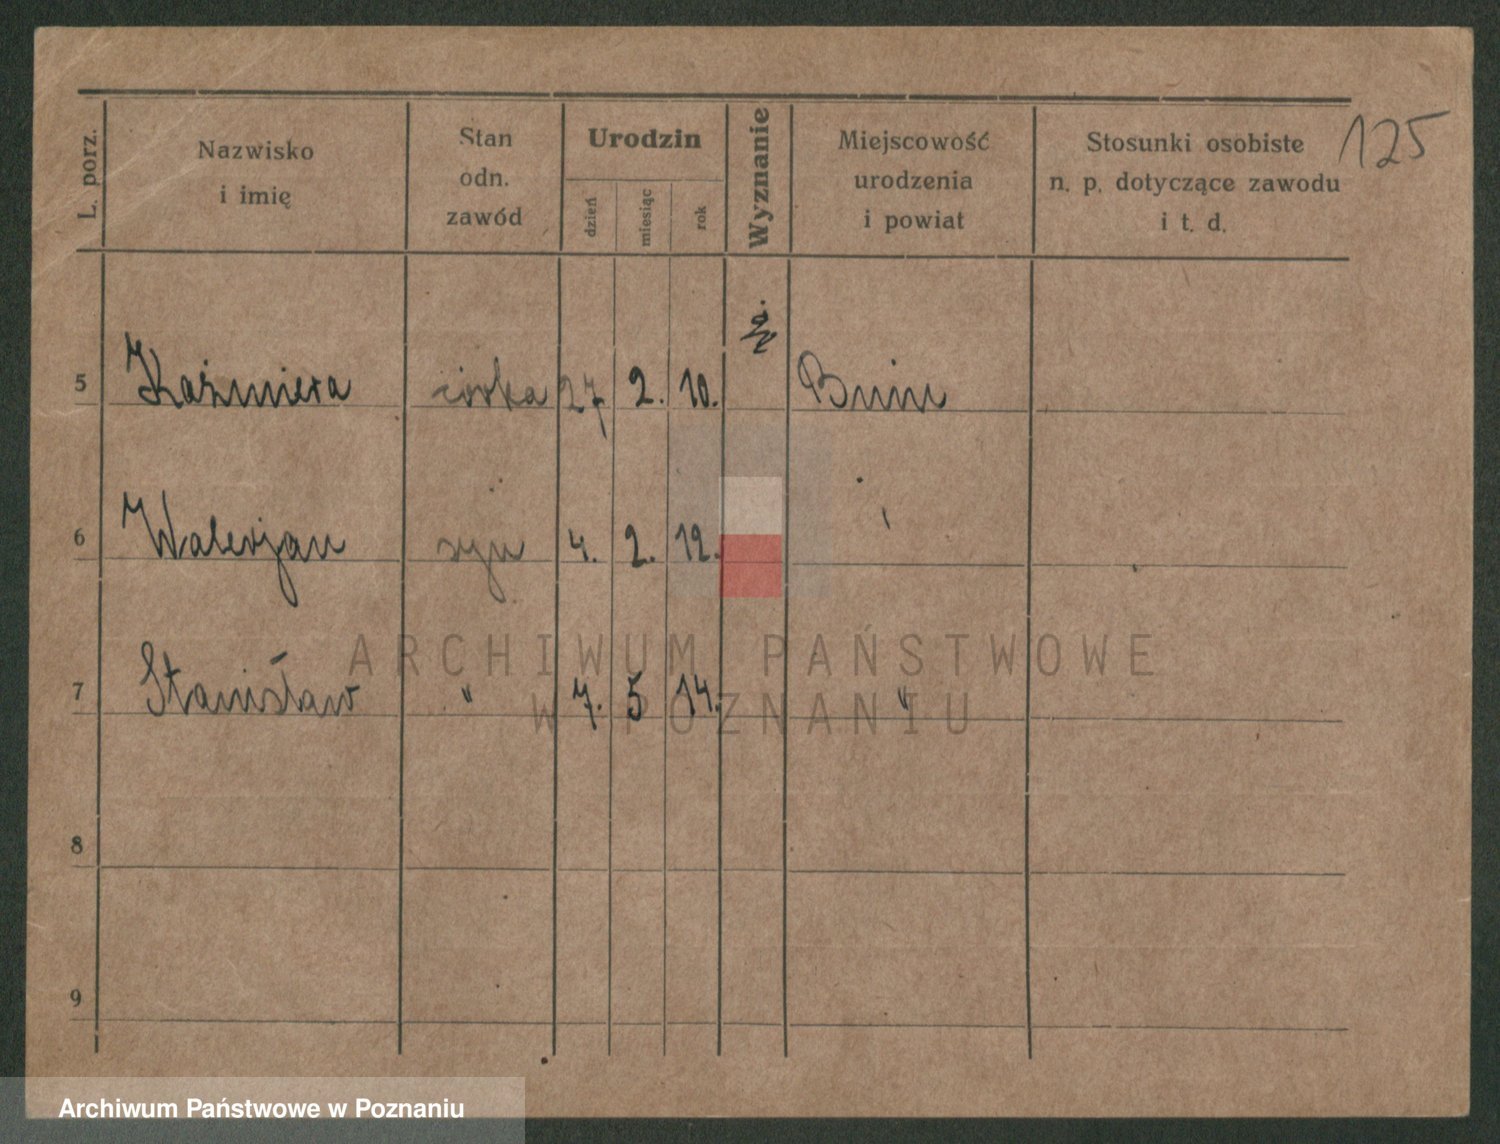 125
L. porz. Nazwisko i imię Stan odn. zawód Urodzin dzień miesiąc rok Wyznanie Miejscowość urodzenia i powiat Stosunki osobiste n. p. dotyczące zawodu i t. d.
5 Kaźmiera córka 27 2. 10. Bnin
6 Waleryan syn 4. 2. 12. "
7 Stanisław " 7. 5 14. "
8
9
ARCHIWUM PAŃSTWOWE
W POZNANIU
Archiwum Państwowe w Poznaniu